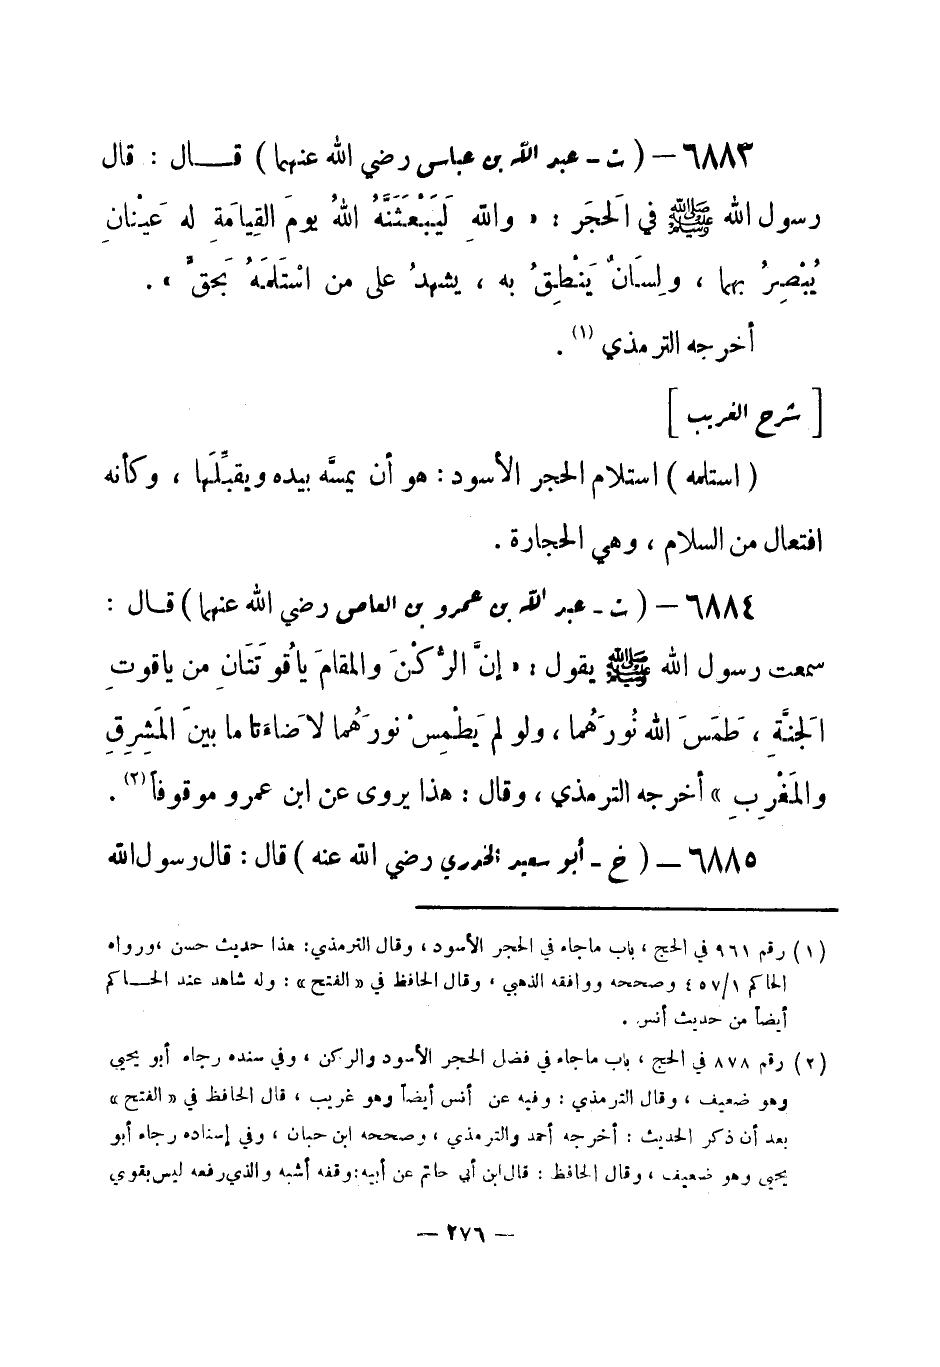 ٦٨٨٣ – ( ت - عبد الله بن عباس رضي الله عنهما ) قـــال : قال
رسول الله ﷺ في الَحجَر : « واللهِ لَيَبْعَثَنَّهُ اللهُ يومَ القِيامَةِ له عَيْنانِ
يُبْصِرُ بهما ، ولِسَانٌ يَنْطِقُ به ، يشهدُ على من اسْتَلَمَهُ بَحقٍّ » .
أخرجه الترمذي (١) .
[ شرح الغريب ]
( استلمه ) استلام الحجر الأسود : هو أن يمسَّه بيده ويقبِّلَها ، وكأنه
افتعال من السلام ، وهي الحجارة .
٦٨٨٤ – ( ت - عبد الله بن عمرو بن العاص رضي الله عنهما ) قـال :
سمعت رسول الله ﷺ يقول : « إنَّ الرُّكْنَ والمقامَ ياقُوتَتَانِ من ياقوتِ
الجنَّةِ ، طَمَسَ الله نُورَهُما ، ولو لم يَطْمِسْ نورَهُما لاضَاءَتا ما بينَ المَشرِقِ
والمَغْرِبِ » أخرجه الترمذي ، وقال : هذا يروى عن ابن عمرو موقوفاً (٢) .
٦٨٨٥ – ( خ - أبو سعيد الخدري رضي الله عنه ) قال : قال رسول الله
(١) رقم ٩٦١ في الحج ، باب ماجاء في الحجر الأسود ، وقال الترمذي: هذا حديث حسن ،ورواه
الحاكم ٤٥٧/١ وصححه ووافقه الذهبي ، وقال الحافظ في « الفتح » : وله شاهد عند الحـــاكم
أيضاً من حديث أنس .
(٢) رقم ٨٧٨ في الحج ، باب ماجاء في فضل الحجر الأسود والركن ، وفي سنده رجاء أبو يحيى
وهو ضعيف ، وقال الترمذي : وفيه عن أنس أيضاً وهو غريب ، قال الحافظ في « الفتح »
بعد أن ذكر الحديث : أخرجه أحمد والترمذي ، وصححه ابن حبان ، وفي إسناده رجاء أبو
يحيى وهو ضعيف ، وقال الحافظ : قال ابن أبي حاتم عن أبيه: وقفه أشبه والذي رفعه ليس بقوي
– ٢٧٦ –